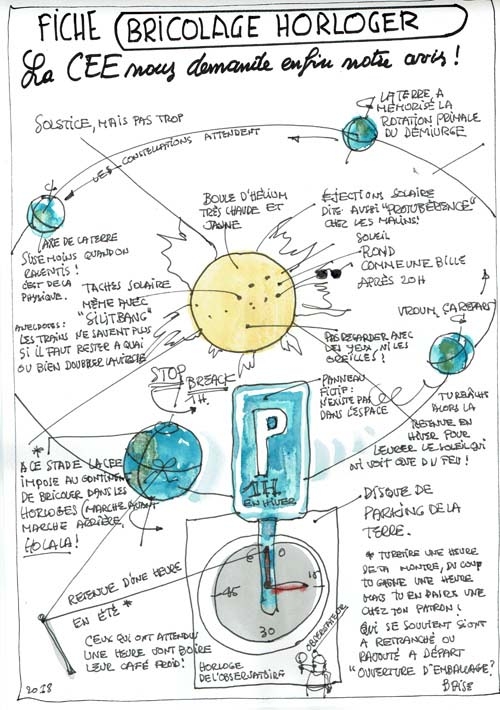 FICHE BRICOLAGE HORLOGER
La CEE nous demande enfin notre avis !
SOLSTICE, MAIS PAS TROP
LES CONSTELLATIONS ATTENDENT
LA TERRE, A
MÉMORISÉ LA
ROTATION PRIMALE
DU DÉMIURGE
AXE DE LA TERRE
S'USE MOINS QUAND ON
RALENTIS !
C'EST DE LA
PHYSIQUE.
BOULE D'HÉLIUM
TRÈS CHAUDE ET
JAUNE
ÉJECTIONS SOLAIRE
DITE AUSSI "PROTUBÉRENCE"
CHEZ LES MALINS!
SOLEIL
ROND
COMME UNE BILLE
APRÈS 20H
TACHES SOLAIRE
MÊME AVEC
"SILITBANG"
ANECDOTES:
LES TRAINS NE SAVENT PLUS
SI IL FAUT RESTER A QUAI
OU BIEN DOUBLER LA VITESSE
VROUM, ÇA REPART
PAS REGARDER AVEC
DES YEUX, NI LES
OREILLES !
STOP
BREACK
1H.
PANNEAU
FICTIF:
N'EXISTE PAS
DANS L'ESPACE
TU RELÂCHE
ALORS LA
RETENUE EN
HIVER POUR
LEURRER LE SOLEIL QUI
N'Y VOIT QUE DU FEU !
P
1H
EN HIVER
* A CE STADE LA CEE
IMPOSE AU CONTINENT
DE BRICOLER DANS LES
HORLOGES (MARCHE AVANT
MARCHE ARRIÈRE,
HOLALA !
DISQUE DE
PARKING DE LA
TERRE.
RETENUE D'UNE HEURE
EN ÉTÉ *
CEUX QUI ONT ATTENDU
UNE HEURE VONT BOIRE
LEUR CAFÉ FROID!
0
15
30
45
HORLOGE
DE L'OBSERVATOIRE
OBSERVATEUR
* TU RETIRE UNE HEURE
DE TA MONTRE, DU COUP
TU GAGNE UNE HEURE
MAIS TU EN PERDS UNE
CHEZ TON PATRON !
QUI SE SOUVIENT SI ON T
A RETRANCHÉ OU
RAJOUTÉ A DÉPART
"OUVERTURE D'EMBALLAGE?
2018